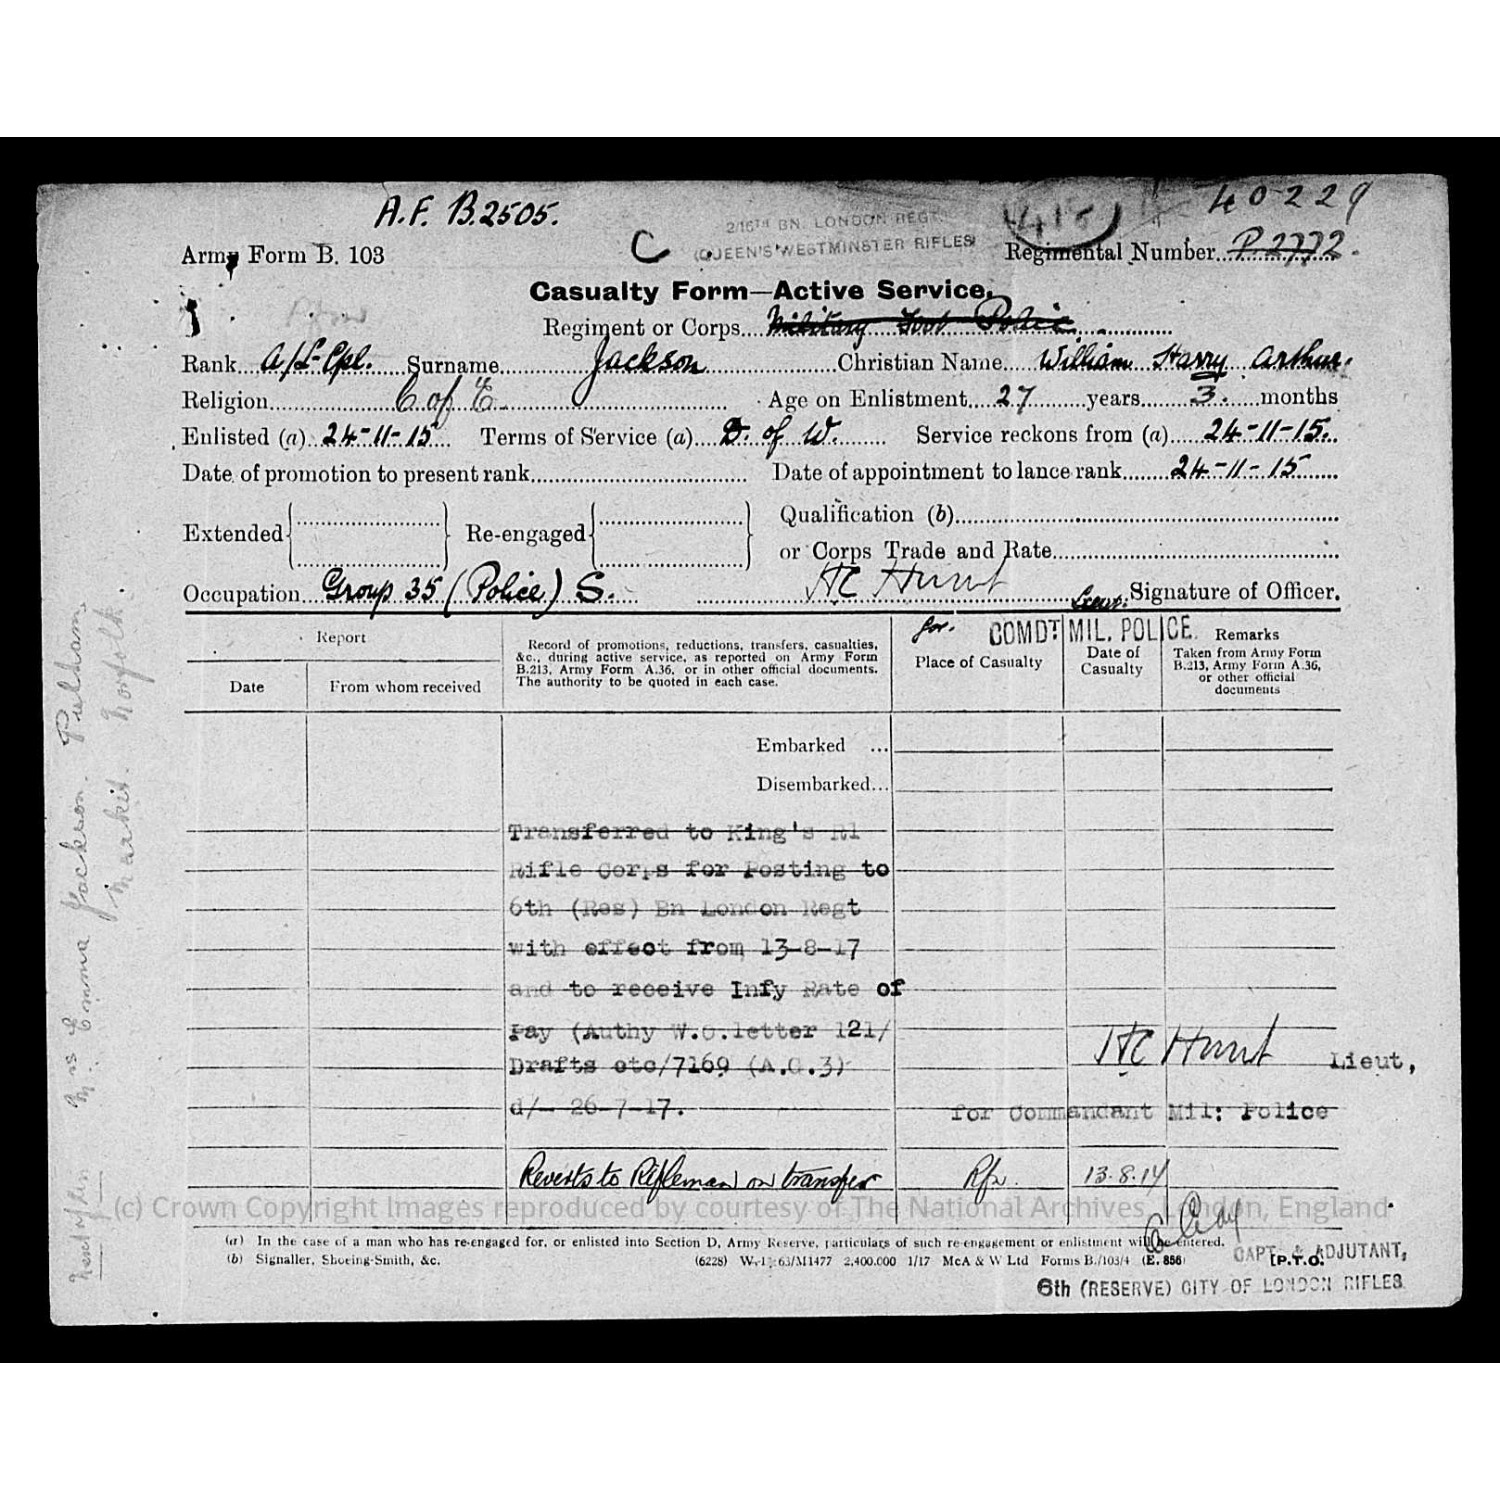 A.F. B.2505.
40229
2/16TH BN. LONDON REGT.
(QUEEN'S WESTMINSTER RIFLES)
C
Army Form B. 103
Regimental Number P.2772.
Casualty Form—Active Service.
Rfn
Regiment or Corps Military Foot Police
Rank A/L-Cpl. Surname Jackson Christian Name William Harry Arthur.
Religion C of E. Age on Enlistment 27 years 3. months
Enlisted (a) 24-11-15 Terms of Service (a) D. of W. Service reckons from (a) 24-11-15.
Date of promotion to present rank Date of appointment to lance rank 24-11-15
Extended Re-engaged Qualification (b)
or Corps Trade and Rate
Occupation Group 35 (Police) S. HC Hunt Lieut: Signature of Officer.
for. COMDT. MIL. POLICE.
Report
Date
From whom received
Record of promotions, reductions, transfers, casualties,
&c., during active service, as reported on Army Form
B.213, Army Form A.36, or in other official documents.
The authority to be quoted in each case.
Place of Casualty
Date of
Casualty
Remarks
Taken from Army Form
B.213, Army Form A.36,
or other official
documents
Embarked ...
Disembarked...
Transferred to King's Rl
Rifle Corps for Posting to
6th (Res) Bn London Regt
with effect from 13-8-17
and to receive Infy Rate of
Pay (Authy W.O.letter 121/
Drafts etc/7169 (A.G.3)
d/- 26-7-17.
HC Hunt Lieut,
for Commandant Mil: Police
Reverts to Rifleman on transfer Rfn. 13.8.17
(c) Crown Copyright Images reproduced by courtesy of The National Archives, London, England
(a) In the case of a man who has re-engaged for, or enlisted into Section D, Army Reserve, particulars of such re-engagement or enlistment will be entered.
(b) Signaller, Shoeing-Smith, &c.
(E. 856) [P.T.O.
CAPT. & ADJUTANT,
6th (RESERVE) CITY OF LONDON RIFLES
Next of kin Mrs Emma Jackson. Pulham,
Market. Norfolk.